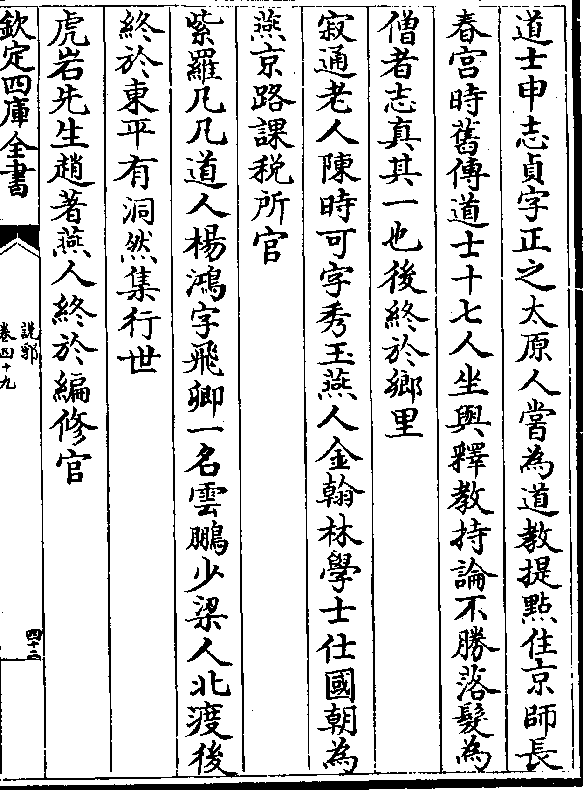 道士申志貞字正之太原人嘗為道教提點住京師長
春宮時舊傳道士十七人坐與釋教持論不勝落髮為
僧者志真其一也後終於鄉里
寂通老人陳時可字秀玉燕人金翰林學士仕國朝為
燕京路課稅所官
紫羅几几道人楊鴻字飛卿一名雲鵬少梁人北渡後
終於東平有洞然集行世
虎岩先生趙著燕人終於編修官
欽定四庫全書
說郛
卷四十九
四十三